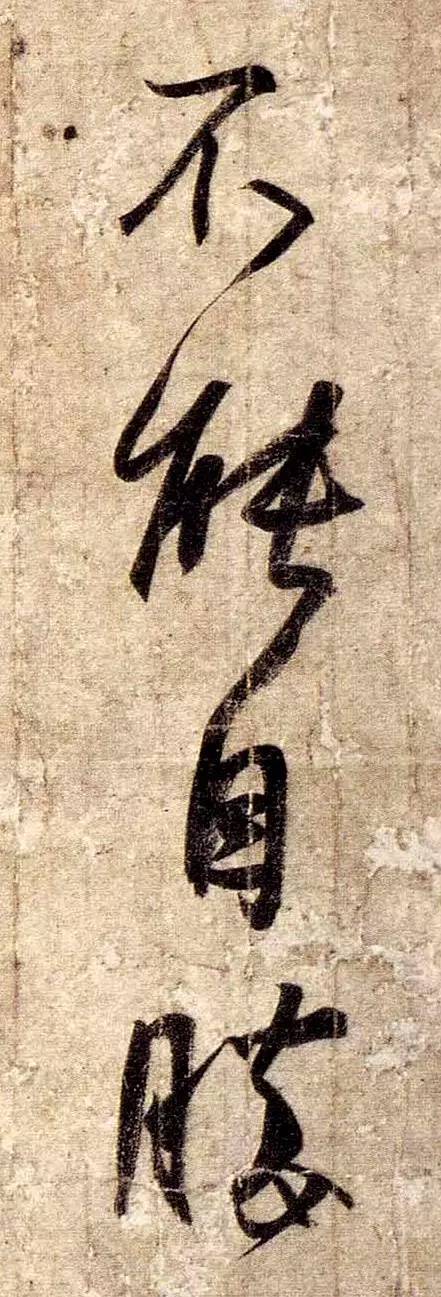 不能自勝